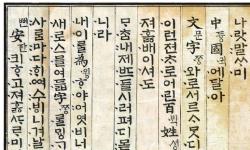 나랏말ᄊᆞ미
中듀ᇰ國귁에달아
文문字ᄍᆞᆼ와로서르ᄉᆞᄆᆞᆺ디
이런젼ᄎᆞ로어린百ᄇᆡᆨ姓셔ᇰ
져ᄒᆞᇙ배이셔도
ᄆᆞᄎᆞᆷ내제ᄠᅳ들시러펴디몯
니라
내이ᄅᆞᆯ爲윙ᄒᆞ야어엿비너
새로스믈여듧字ᄍᆞᆼᄅᆞᆯᄆᆡᇰ
사ᄅᆞᆷ마다ᄒᆡᅇᅧ수ᄫᅵ니겨날
便뼌安ᅙᅡᆫ킈ᄒᆞ고져ᄒᆞᇙᄯᆞᄅᆞ미